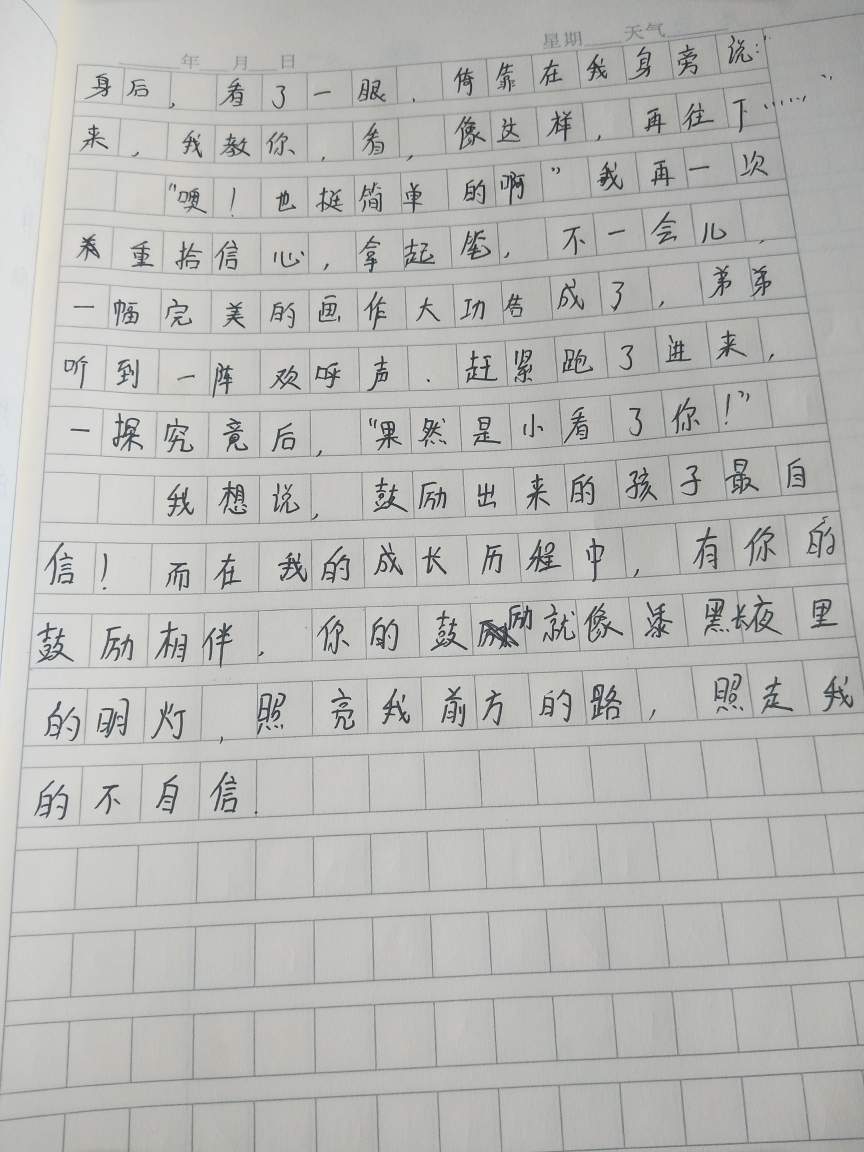 年 月 日 星期 天气
身后，看了一眼．倚靠在我身旁说："
来，我教你，看，像这样，再往下……"
"噢！也挺简单的啊"我再一次
重拾信心，拿起笔，不一会儿，
一幅完美的画作大功告成了，弟弟
听到一阵欢呼声．赶紧跑了进来，
一探究竟后，"果然是小看了你！"
我想说，鼓励出来的孩子最自
信！而在我的成长历程中，有你的
鼓励相伴．你的鼓励就像黑长夜里
的明灯，照亮我前方的路，照走我
的不自信．